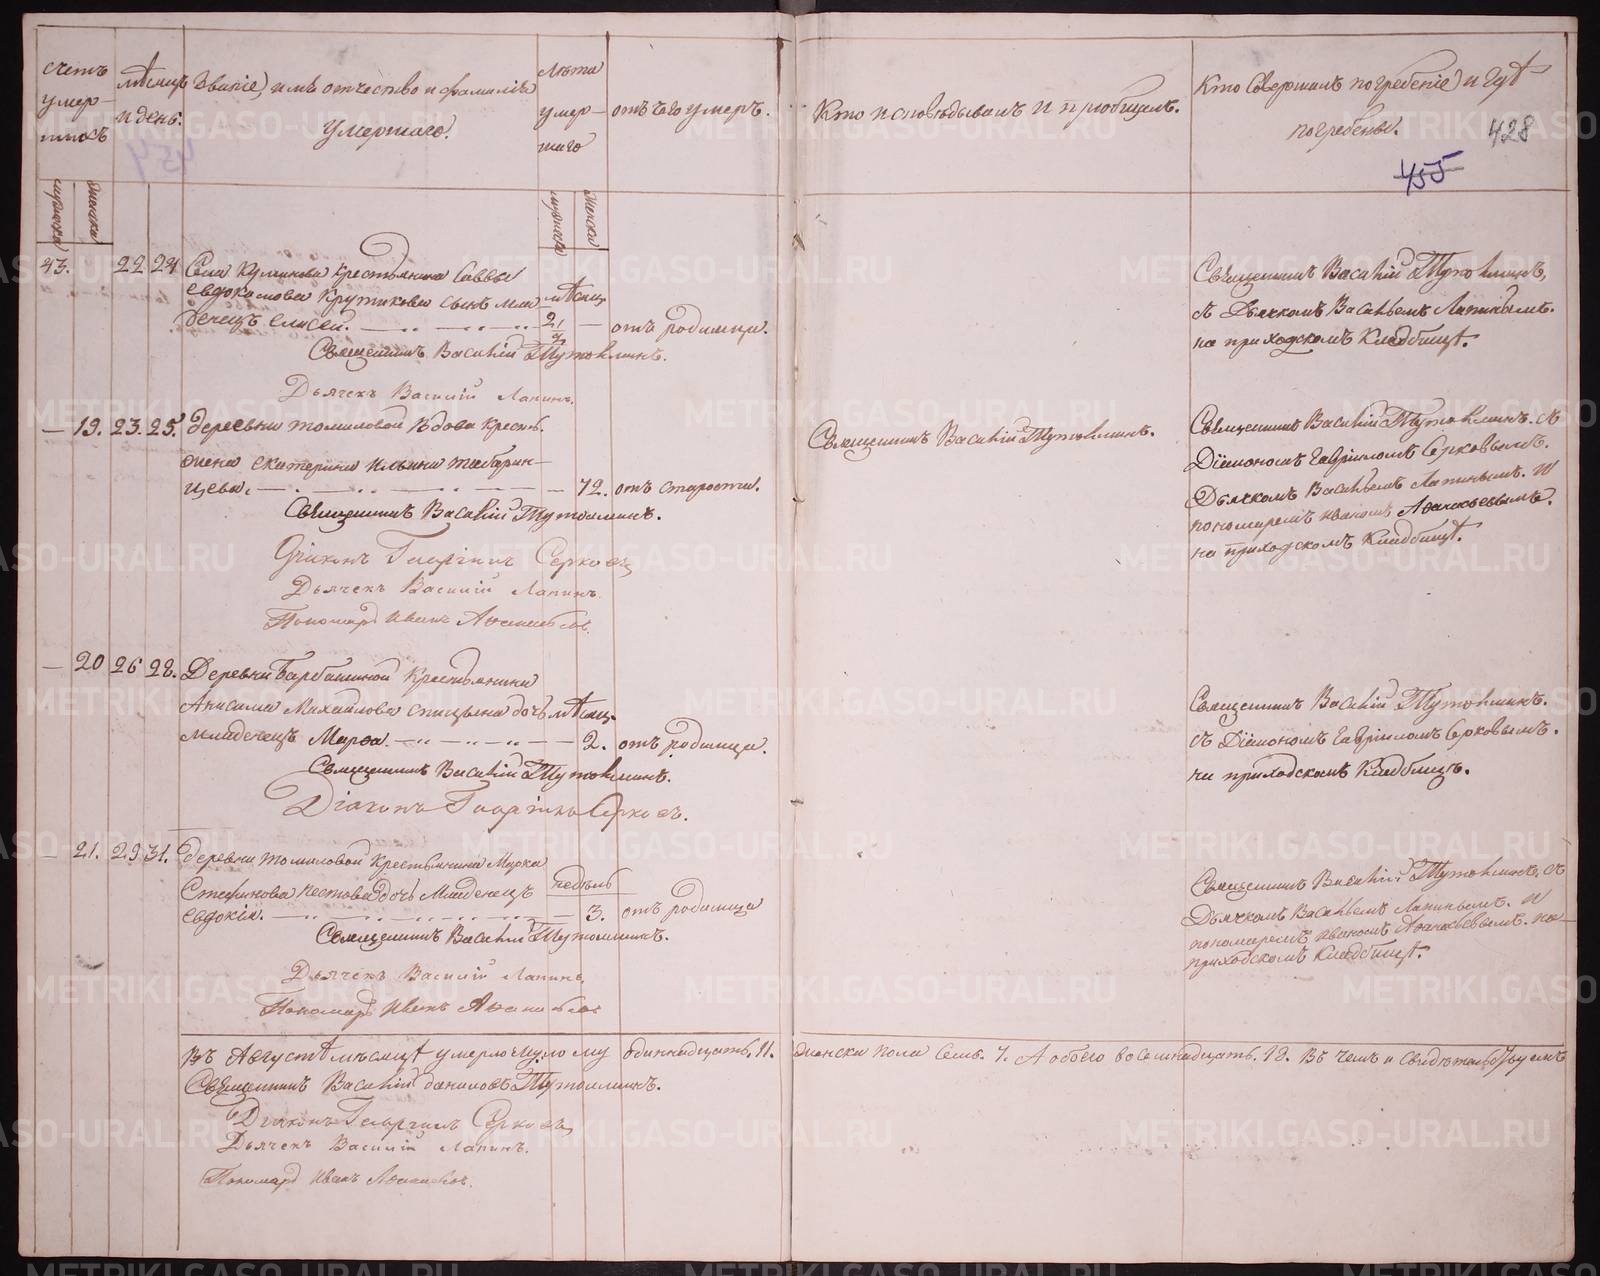 счетъ умер-шихъ
мужеска
женска
мѣсяцъ и день.
Званіе, имѣ отчество и фамиліѣ умершаго.
Лѣта умер-шаго
мужеска
женска
отъ чего умеръ.
Кто исповѣдывалъ и приобщалъ.
Кто совершалъ погребеніе и гдѣ погребены.
428
455
43. 22 24
Села Куликова крестьянина Саввы
Евдокимова Крутикова сынъ мла- мѣсяц.
денецъ Елисей. 2 1/2 — отъ родимца.
Священникъ Василій Тутолминъ.
Дьячекъ Василій Лапинъ.
Священникъ Василій Тутолминъ,
съ Дьячкомъ Васильемъ Лапинымъ.
на приходскомъ Кладбищѣ.
— 19. 23. 25. деревни Томиловой вдова крестья-
женка Екатерина Ильина Табарин-
цева. — 72. отъ старости.
Священникъ Василій Тутолминъ.
Діаконъ Гавріилъ Серковъ
Дьячекъ Василій Лапинъ.
Пономарь Иванъ Аѳанасьевъ.
Священникъ Василій Тутолминъ.
Священникъ Василій Тутолминъ. съ
Діакономъ Гавріиломъ Серковымъ.
Дьячкомъ Васильемъ Лапинымъ. и
пономаремъ Иваномъ Аѳанасьевымъ.
на приходскомъ Кладбищѣ.
— 20 26 28. Деревни Барбашиной Крестьянина
Анисима Михайлова Спицына дочь мѣсяц.
младенецъ Марѳа. — 2. отъ родимца.
Священникъ Василій Тутолминъ.
Діаконъ Гавріилъ Серковъ.
Священникъ Василій Тутолминъ.
съ Діакономъ Гавріиломъ Серковымъ.
на приходскомъ Кладбищѣ.
— 21. 29 31. деревни Томиловой крестьянина Марка
Стефанова Пестова дочь Младенецъ недѣль
Евдокія. — 3. отъ родимца
Священникъ Василій Тутолминъ.
Дьячекъ Василій Лапинъ.
Пономарь Иванъ Аѳанасьевъ
Священникъ Василій Тутолминъ, съ
Дьячкомъ Васильемъ Лапинымъ. и
пономаремъ Иваномъ Аѳанасьевымъ. на
приходскомъ Кладбищѣ.
Въ Августѣ мѣсяцѣ умерло одиннадцать. 11. женска пола семь. 7. А обоего восемнадцать. 18. Въ чемъ и свидѣтельствуемъ
Священникъ Василій Даниловъ Тутолминъ.
Діаконъ Гавріилъ Серковъ
Дьячекъ Василій Лапинъ.
Пономарь Иванъ Аѳанасьевъ.
METRIKI.GASO-URAL.RU